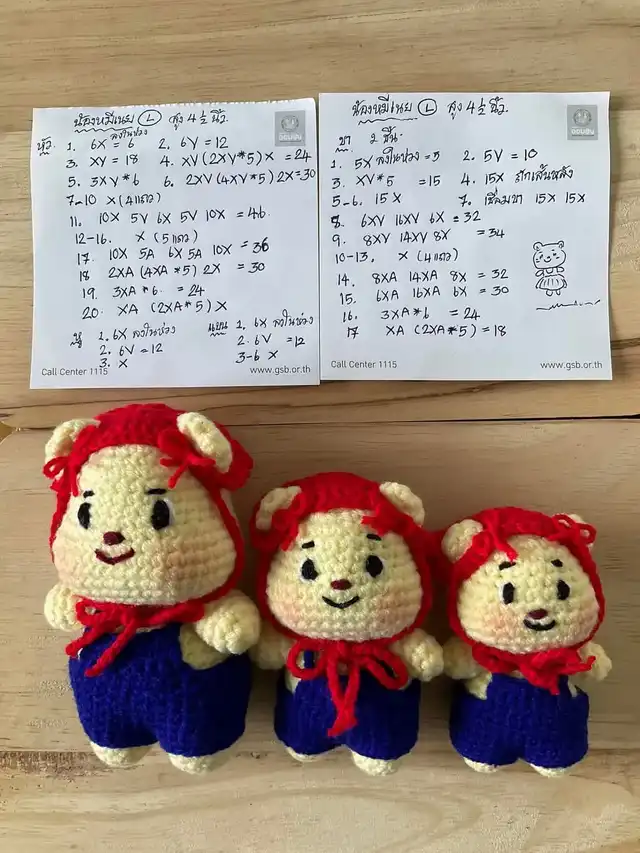 น้องหมีเนย Ⓛ สูง 4½ นิ้ว.
หัว 1. 6X ลงในห่วง = 6 2. 6V = 12
3. XV = 18 4. XV (2XV*5) X = 24
5. 3XV*6 6. 2XV (4XV*5) 2X = 30
7-10 X (4 แถว)
11. 10X 5V 6X 5V 10X = 46.
12-16. X (5 แถว)
17. 10X 5A 6X 5A 10X = 36
18 2XA (4XA*5) 2X = 30
19. 3XA*6 = 24
20. XA (2XA*5) X
หู 1. 6X ลงในห่วง
2. 6V = 12
3. X
แขน 1. 6X ลงในห่วง
2. 6V = 12
3-6 X
Call Center 1115 www.gsb.or.th
ออมสิน
น้องหมีเนย Ⓛ สูง 4½ นิ้ว.
ขา 2 ชิ้น.
1. 5X ลงในห่วง = 5 2. 5V = 10
3. XV*5 = 15 4. 15X ถักเส้นหลัง
5-6. 15X 7. เชื่อมขา 15X 15X
8. 6XV 16XV 6X = 32
9. 8XV 14XV 8X = 34
10-13. X (4 แถว)
14. 8XA 14XA 8X = 32
15. 6XA 16XA 6X = 30
16. 3XA*6 = 24
17 XA (2XA*5) = 18
Call Center 1115 www.gsb.or.th
ออมสิน